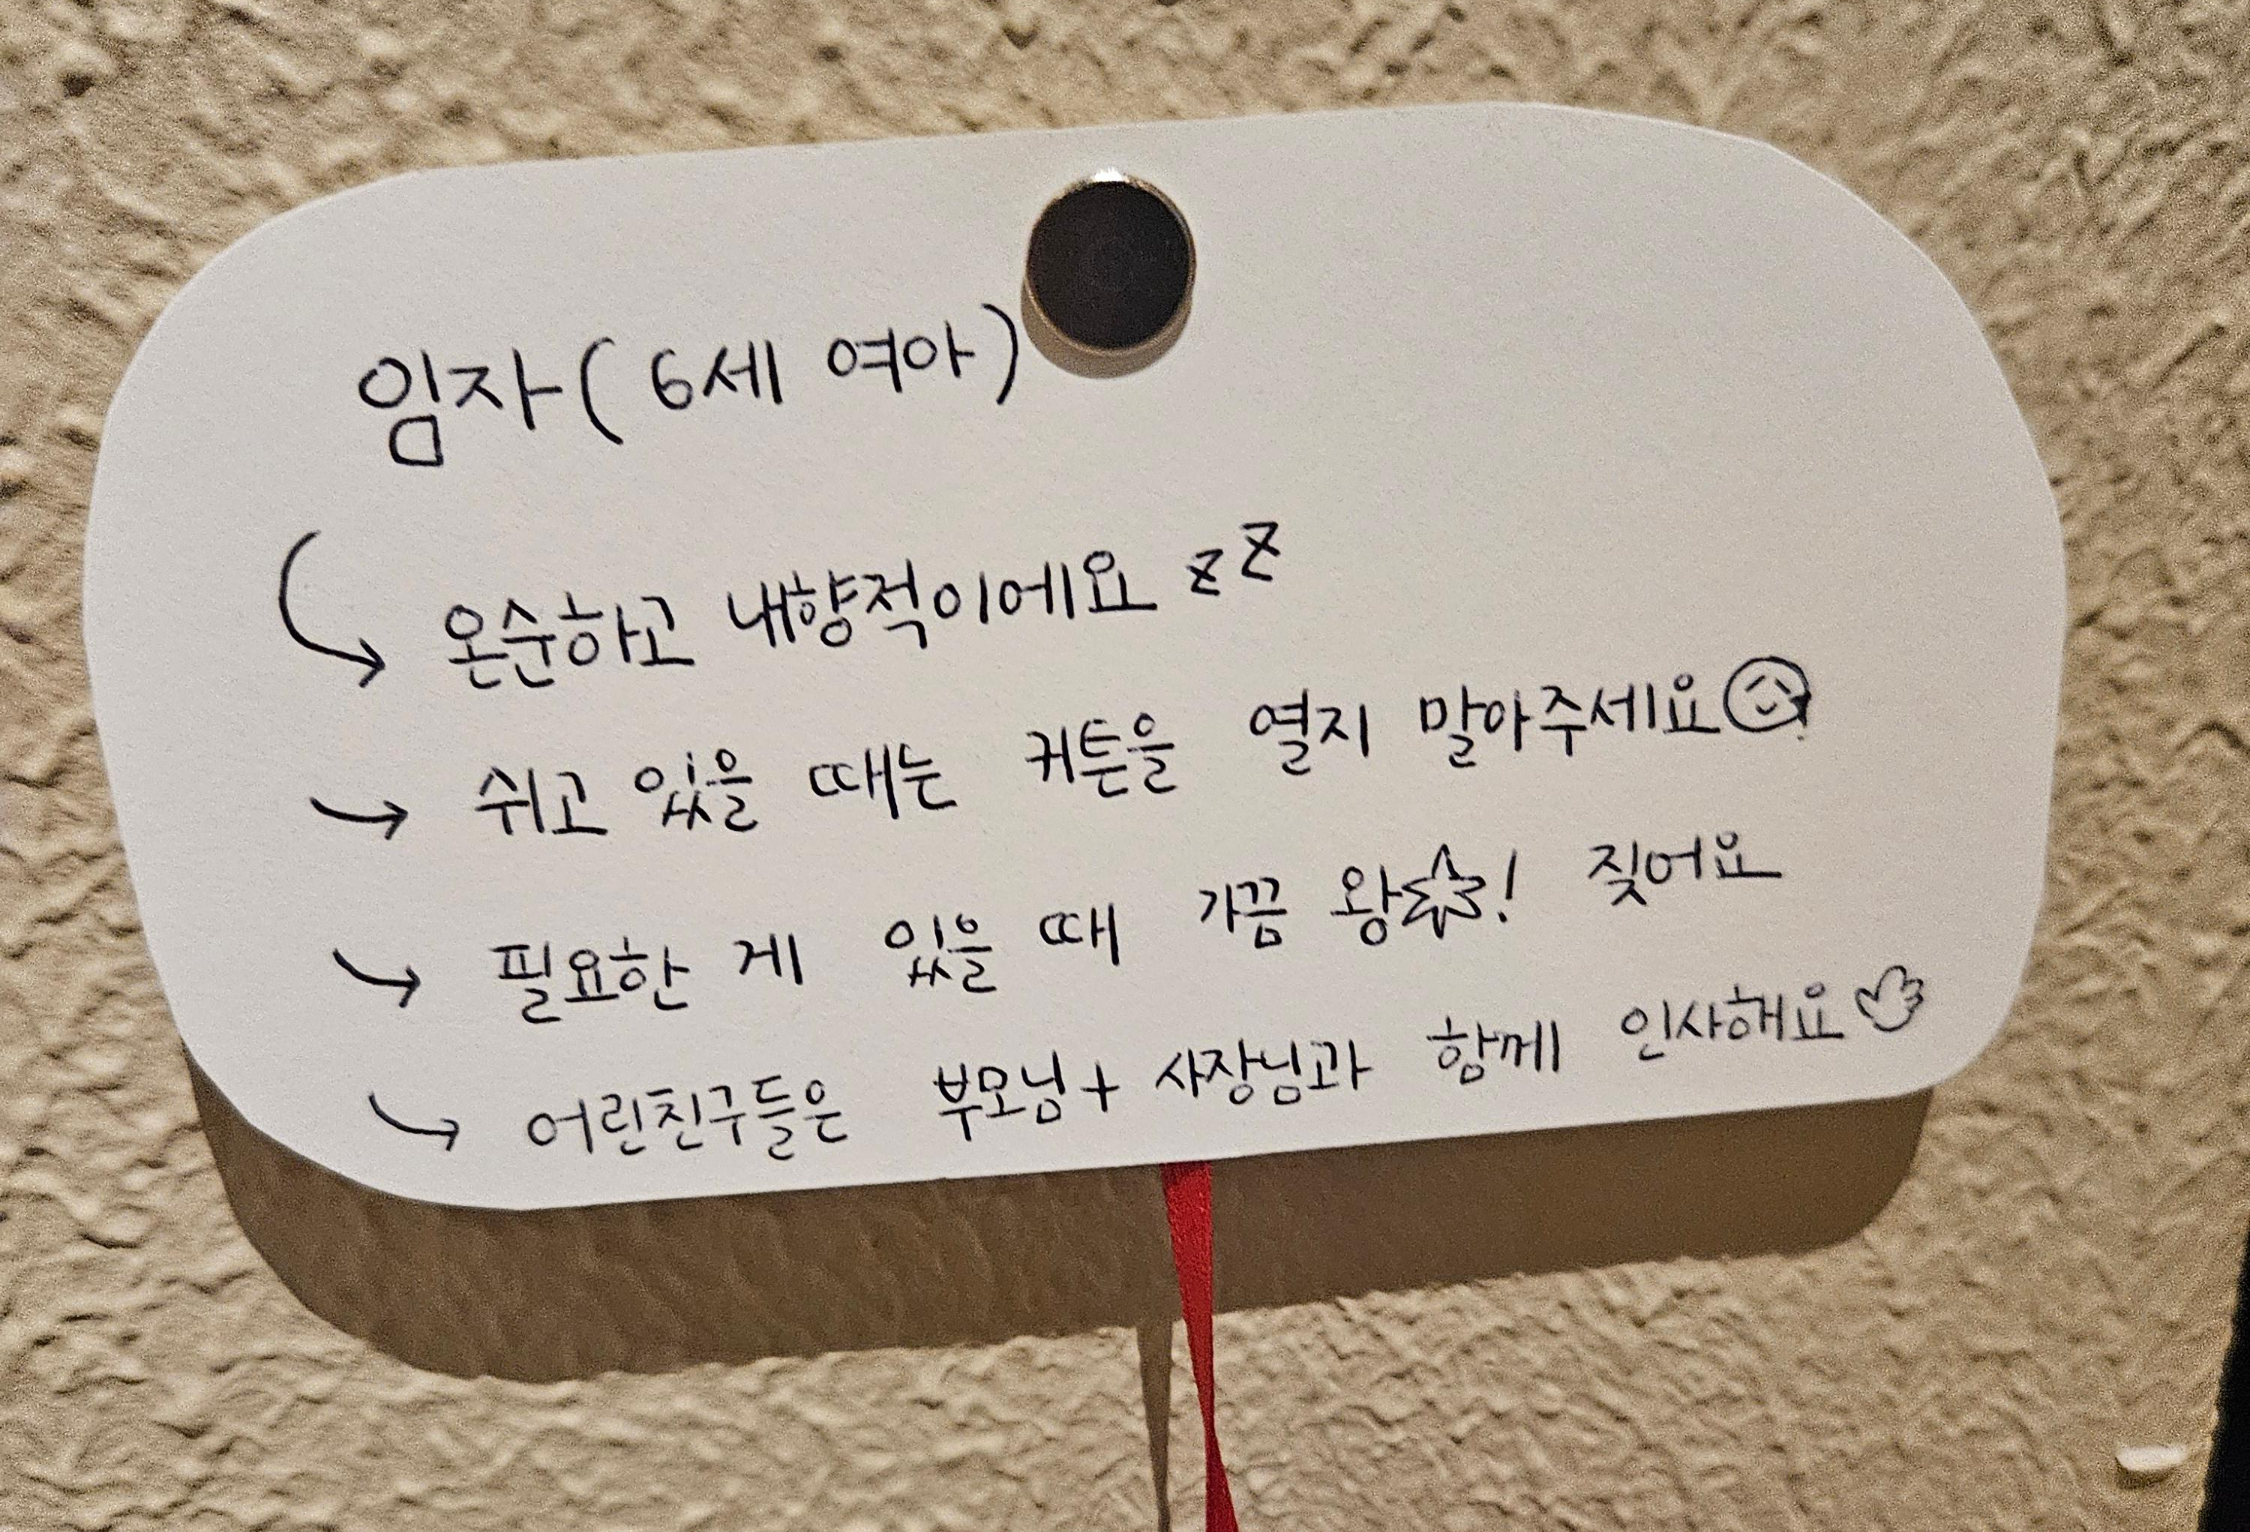 임자(6세 여아)
온순하고 내향적이에요 zz
쉬고 있을 때는 커튼을 열지 말아주세요
필요한 게 있을 때 가끔 왕! 짖어요
어린친구들은 부모님+사장님과 함께 인사해요